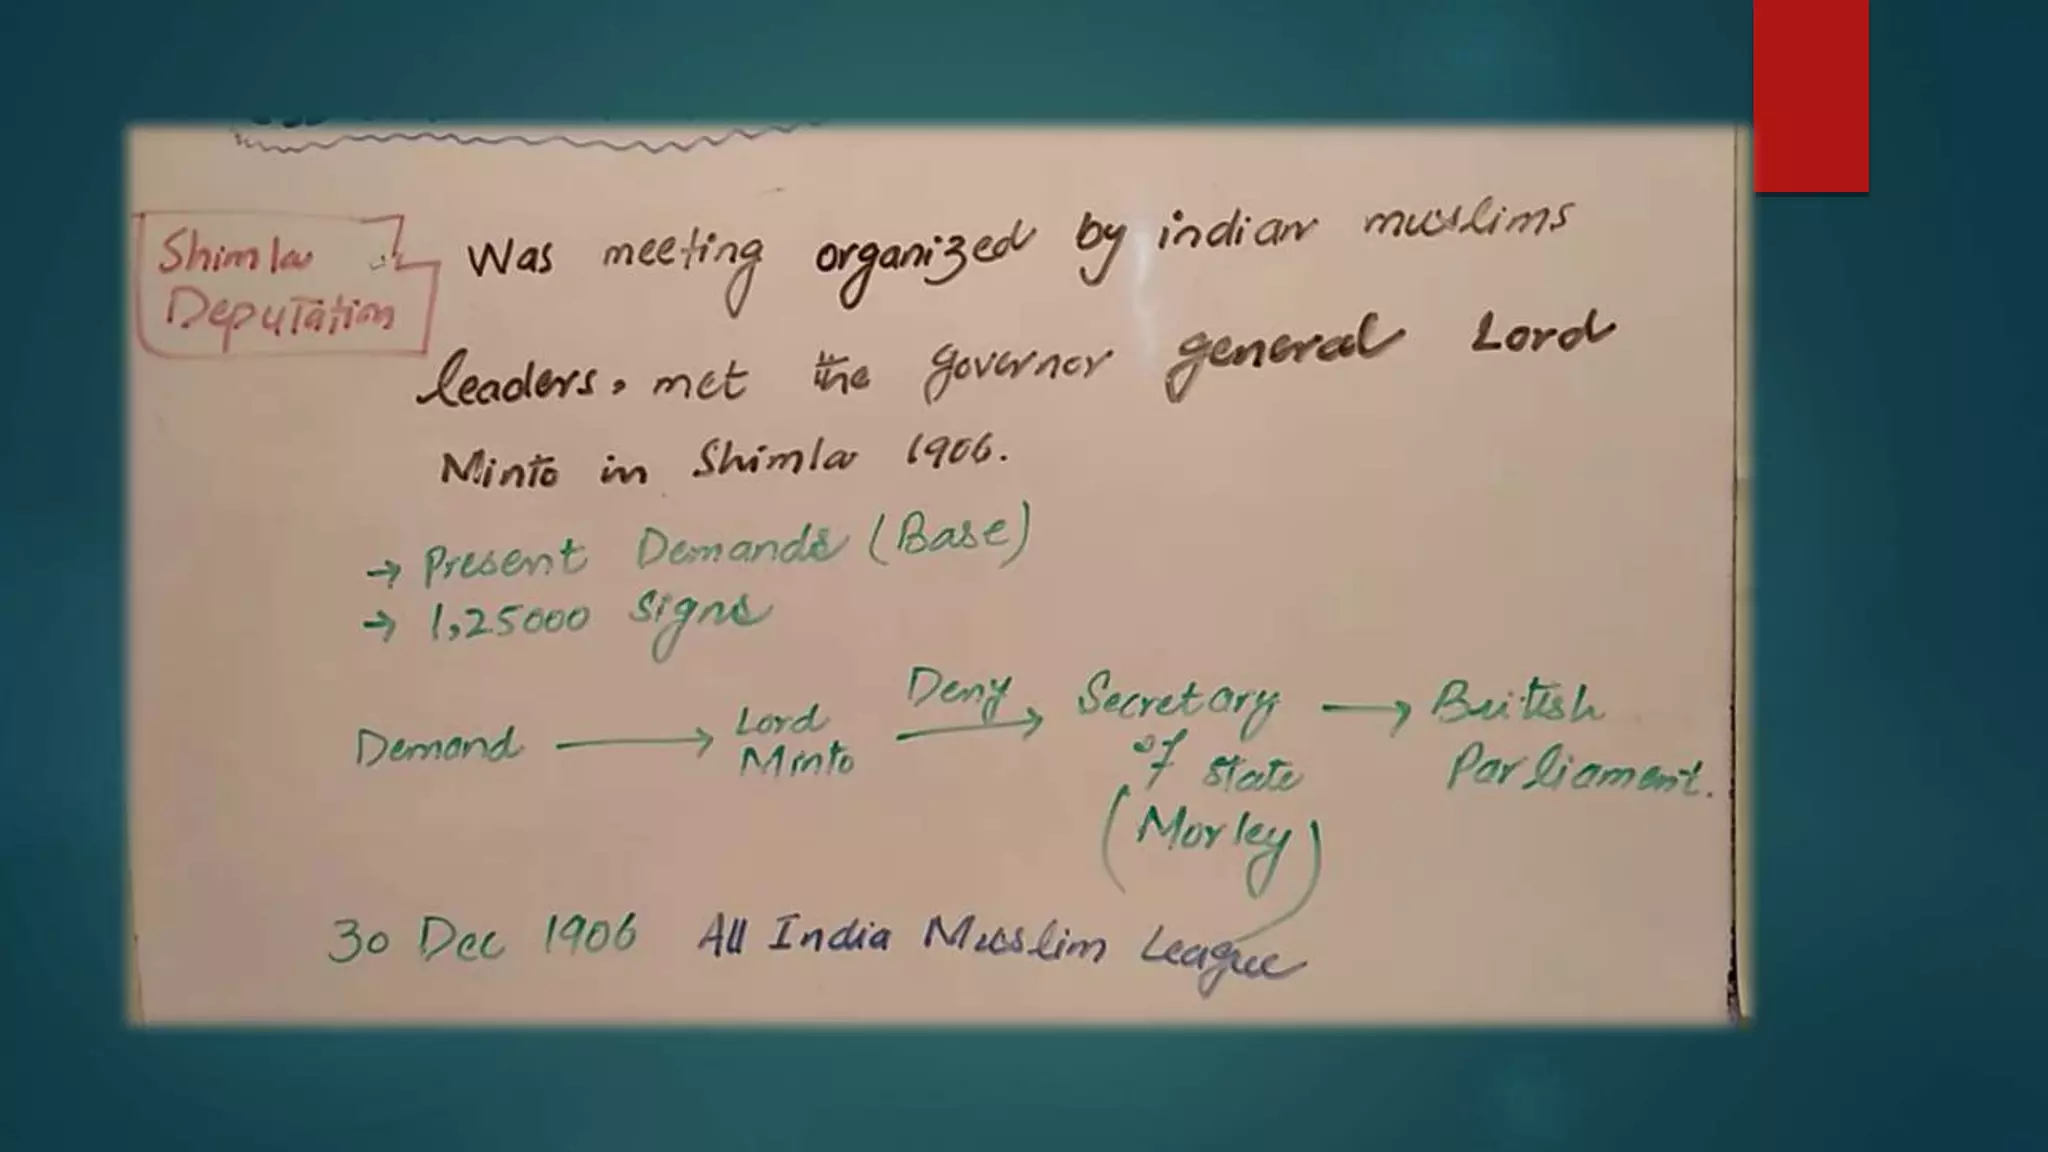 Shimla
Deputation
Was meeting organized by indian muslims
leaders, met the governor general Lord
Minto in Shimla 1906.
→ Present Demands (Base)
→ 1,25000 signs
Demand → Lord Minto Deny → Secretary of state (Morley) → British Parliament.
30 Dec 1906 All India Muslim League